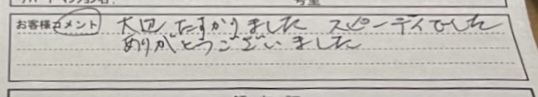 お客様コメント 大変たすかりました スピーディでした
ありがとうございました